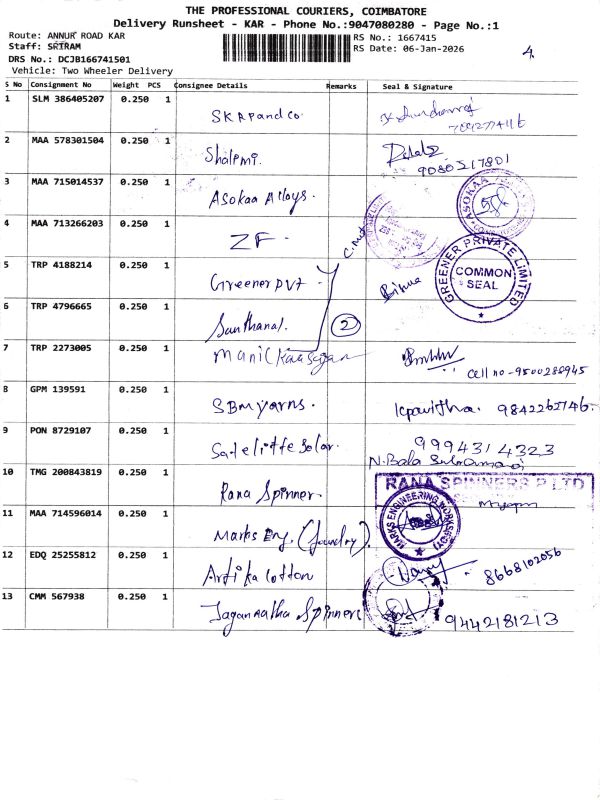 THE PROFESSIONAL COURIERS, COIMBATORE
Delivery Runsheet - KAR - Phone No.:9047080280 - Page No.:1
Route: ANNUR ROAD KAR
RS No.: 1667415
Staff: SRIRAM
RS Date: 06-Jan-2026
4.
DRS No.: DCJB166741501
Vehicle: Two Wheeler Delivery
S No Consignment No Weight PCS Consignee Details Remarks Seal & Signature
1 SLM 386405207 0.250 1 SKAPandCo
2 MAA 578301504 0.250 1 Shalemi. 9080517801
3 MAA 715014537 0.250 1 Asokaa Alloys. ASOKAA
4 MAA 713266203 0.250 1 ZF.
5 TRP 4188214 0.250 1 Greener pvt GREENER PRIVATE LIMITED COMMON SEAL
6 TRP 4796665 0.250 1 Santhanal. 2
7 TRP 2273005 0.250 1 Manickaasagan cell no-9500288945
8 GPM 139591 0.250 1 SBMyarns. kpavithra. 9842262746.
9 PON 8729107 0.250 1 Satelitte Solar. 9994314323
N.Bala Subramani
10 TMG 200843819 0.250 1 Rana Spinner. RANA SPINNERS P LTD
11 MAA 714596014 0.250 1 Marks Eng. (foundry). MARKS ENGINEERING WORKS
12 EDQ 25255812 0.250 1 Artika Cotton 8668102056
13 CMM 567938 0.250 1 Jagannatha Spinners 9442181213